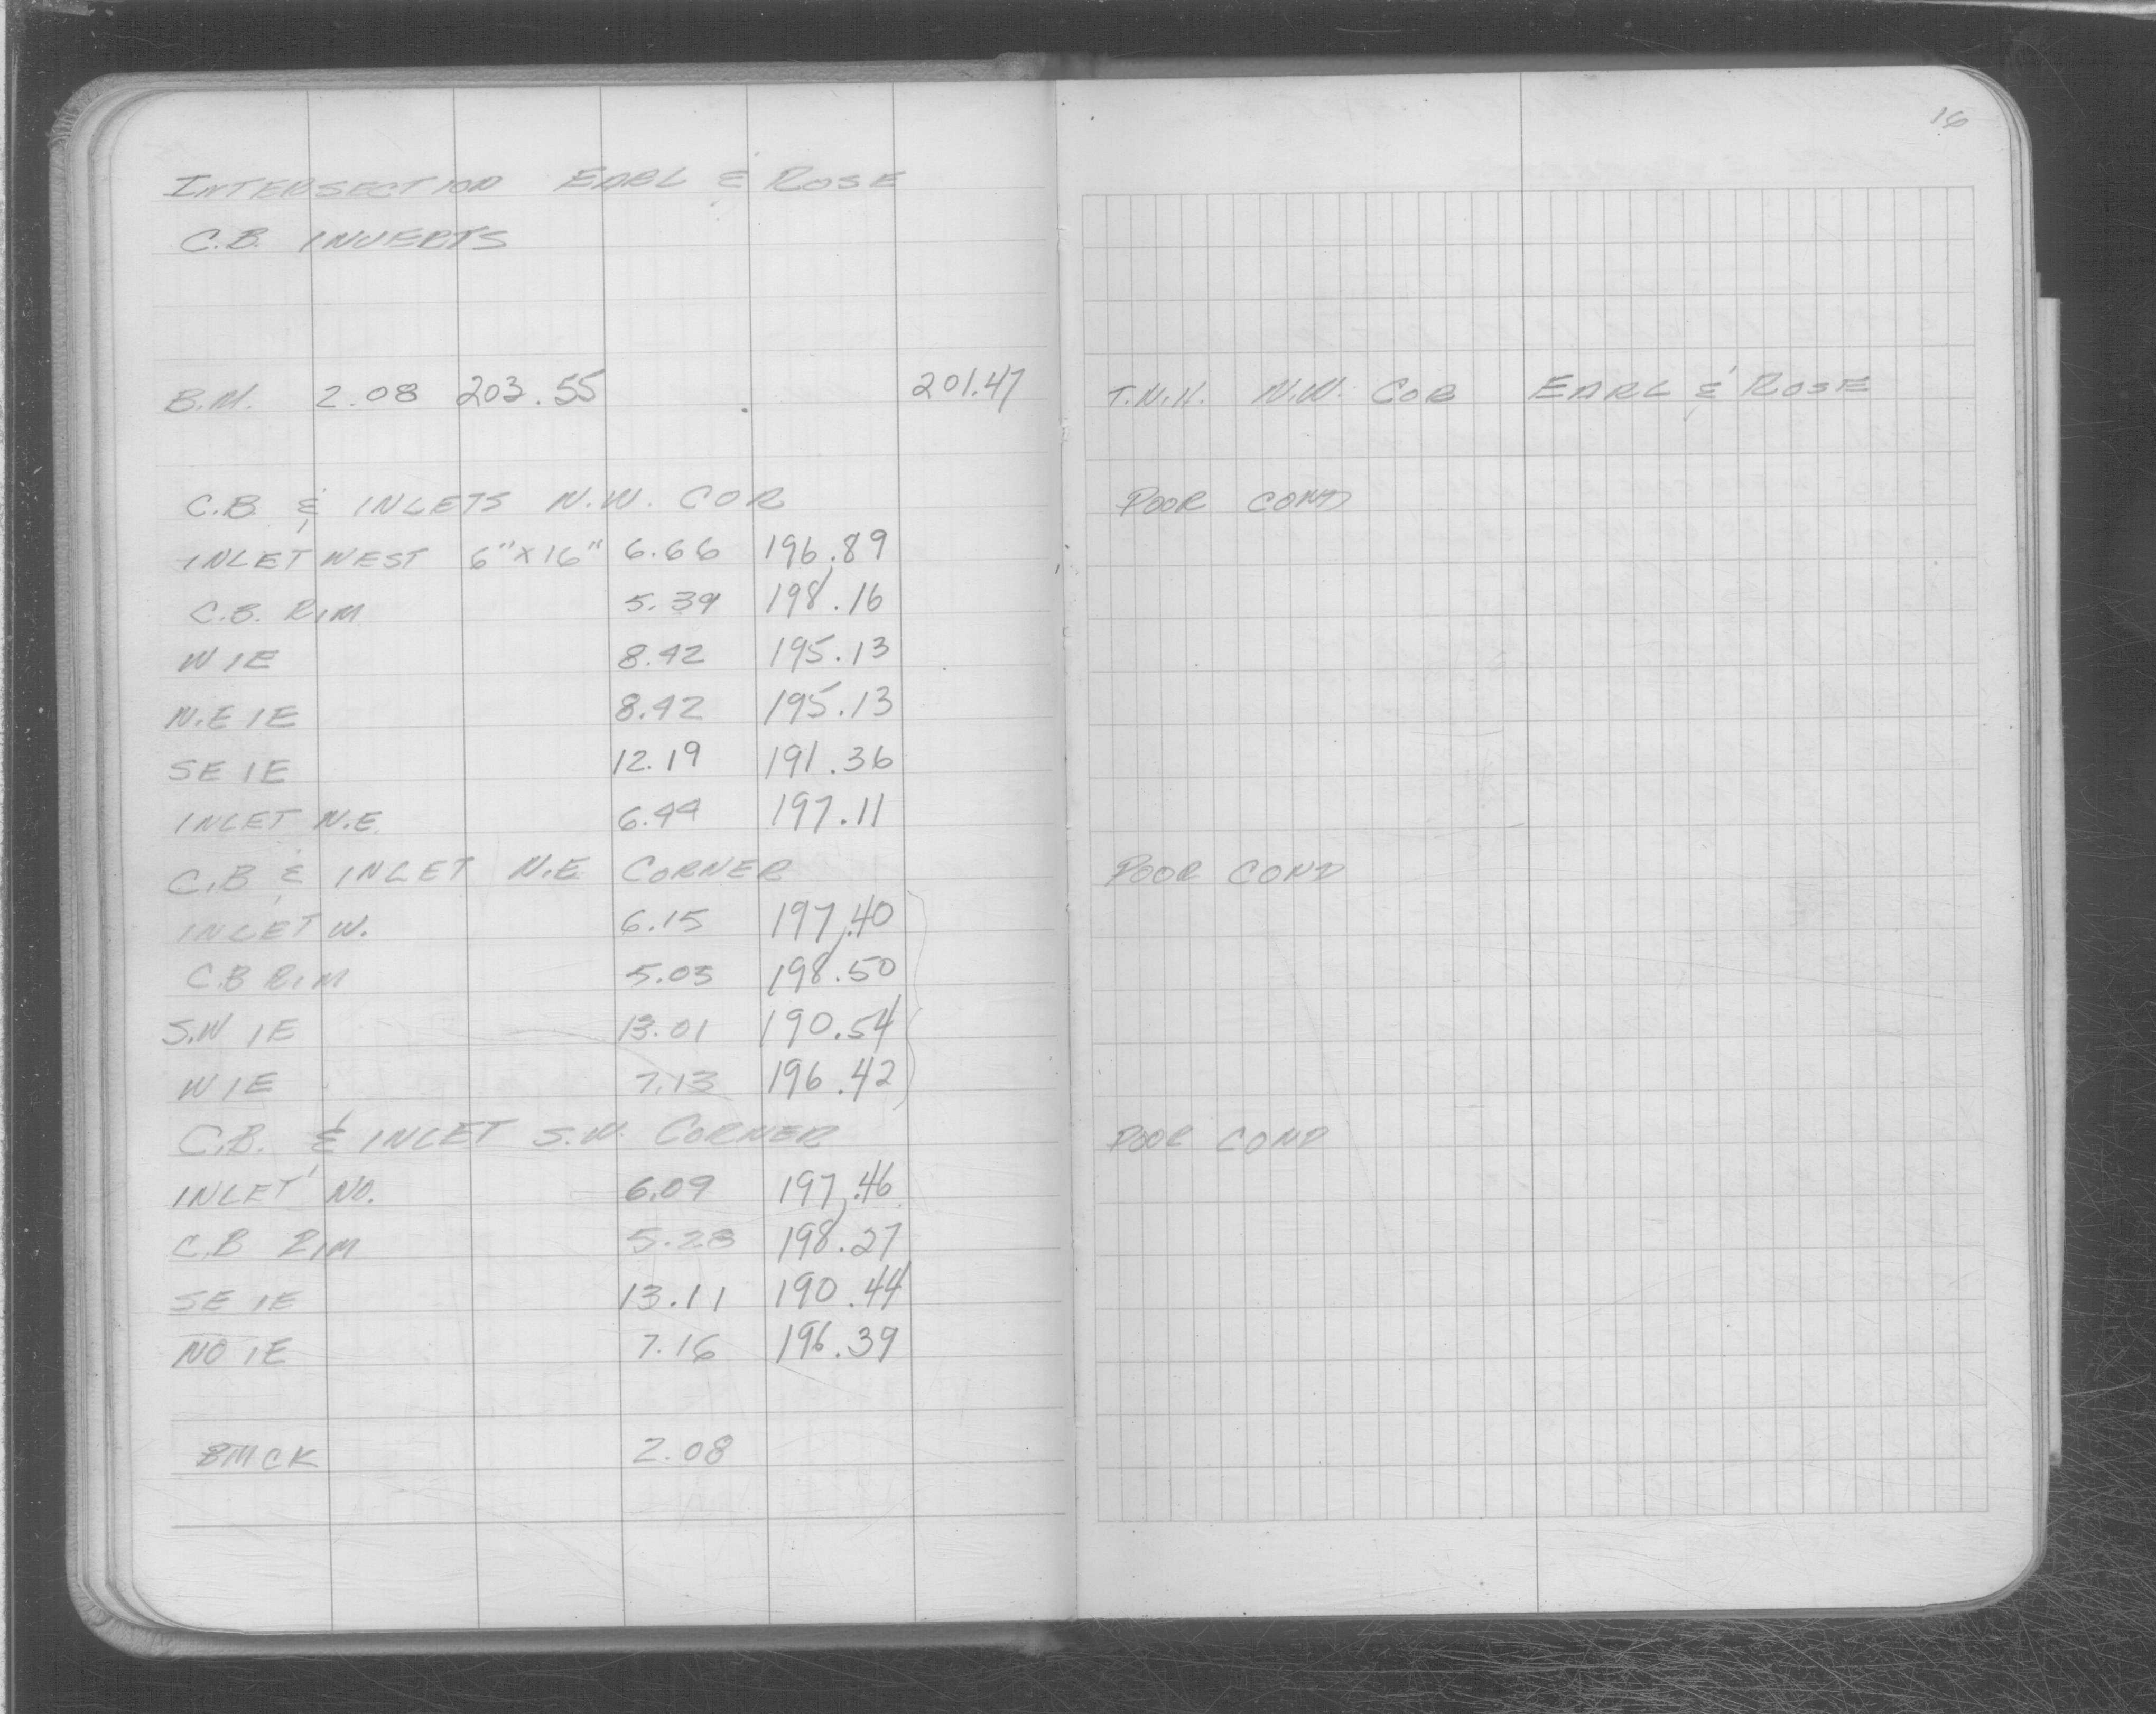 16
INTERSECTION EARL & ROSE
C.B. INVERTS
B.M. 2.08 203.55 201.47 T.N.H. N.W. COR EARL & ROSE
C.B. & INLETS N.W. COR POOR COND
INLET WEST 6"X16" 6.66 196.89
C.B. RIM 5.39 198.16
W IE 8.42 195.13
N.E IE 8.42 195.13
SE IE 12.19 191.36
INLET N.E. 6.44 197.11
C.B & INLET N.E CORNER POOR COND
INLET W. 6.15 197.40
C.B RIM 5.05 198.50
S.W IE 13.01 190.54
W IE 7.13 196.42
C.B. & INLET S.W. CORNER POOR COND
INLET NO. 6.09 197.46
C.B RIM 5.28 198.27
SE IE 13.11 190.44
NO IE 7.16 196.39
BMCK 2.08